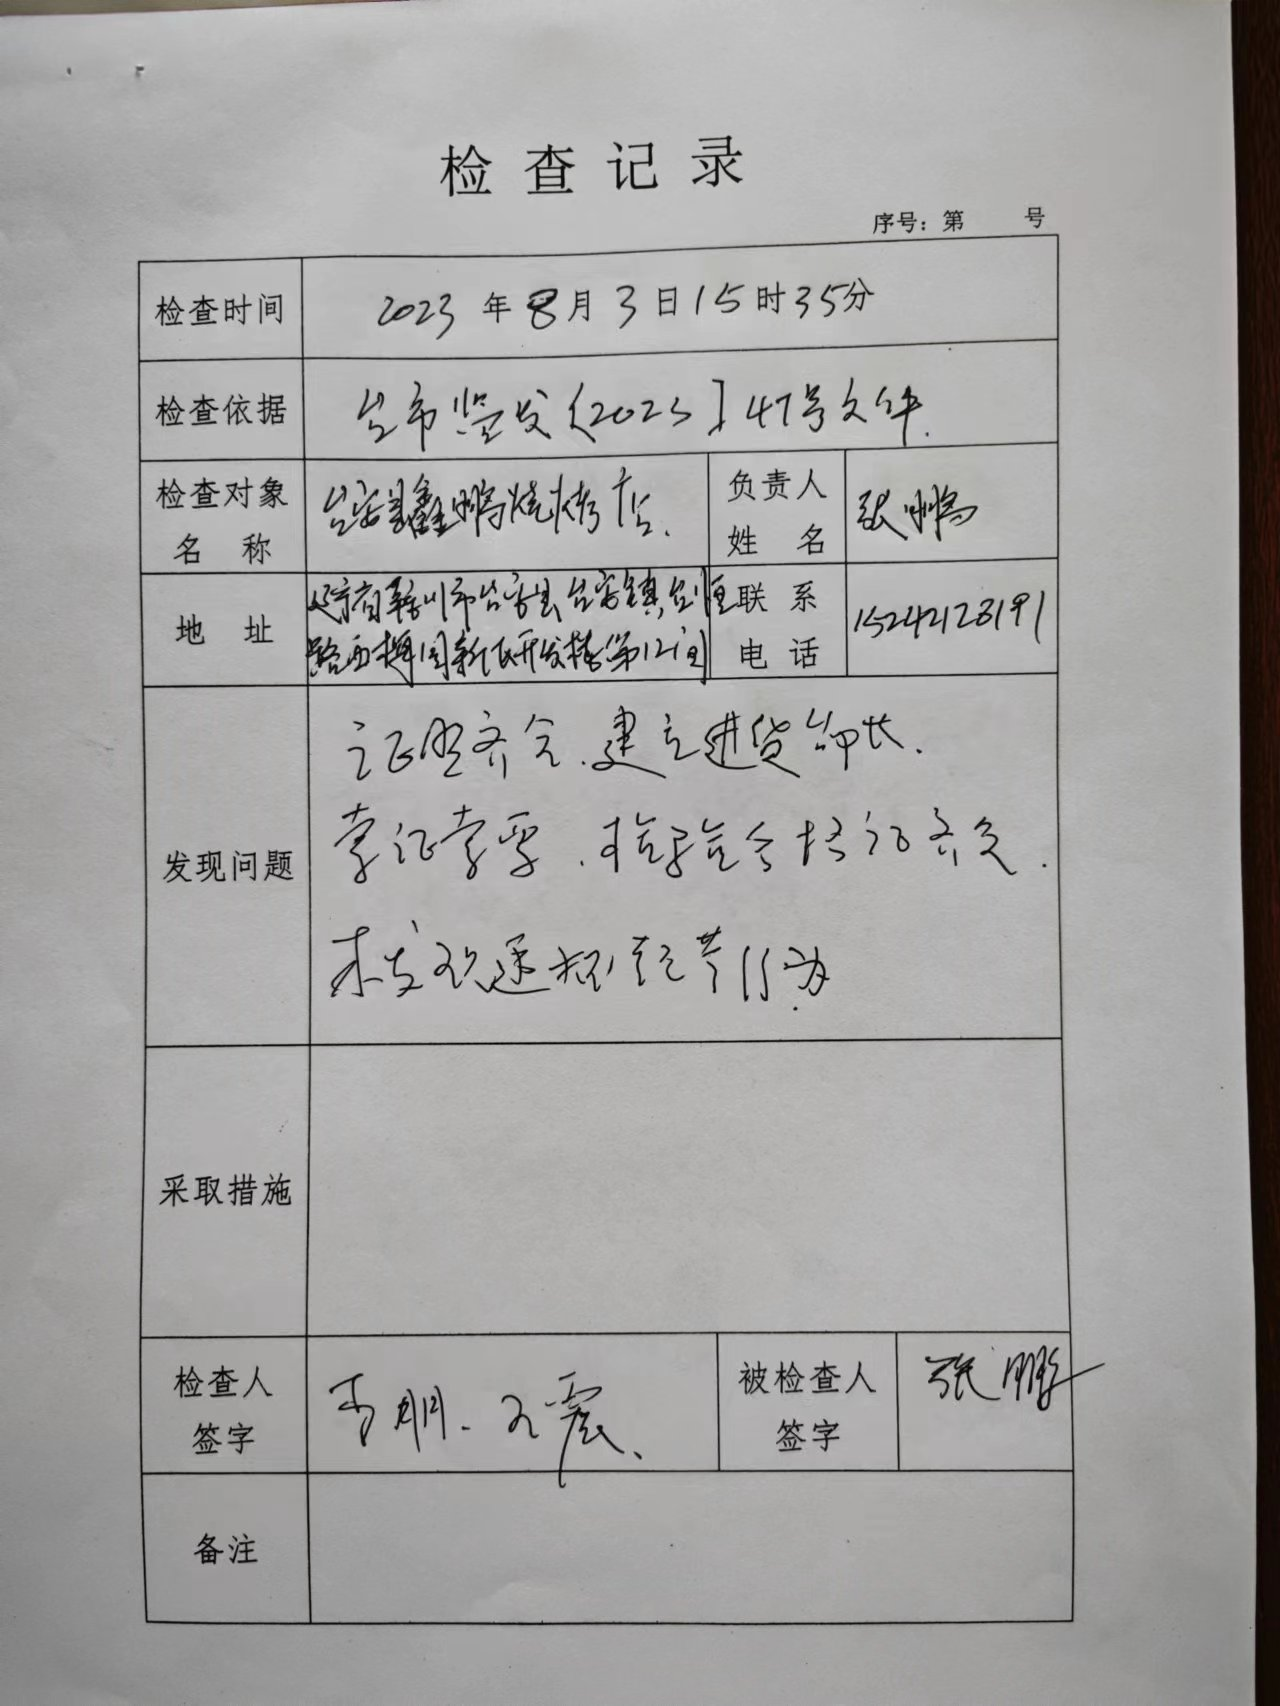 检查记录
序号：第 号
检查时间 2023年8月3日15时35分
检查依据 台市监发〔2023〕47号文件.
检查对象名称 台安县鑫鹏烧烤店. 负责人姓名 张鹏
地址 辽宁省鞍山市台安县台安镇台恒 联系电话 15242128191
路西 新 开发楼第12间
发现问题 证照齐全.建立进货台账.
索证索票.检验合格证齐全.
未发现违规经营行为.
采取措施
检查人签字 李明. 王震. 被检查人签字 张鹏
备注